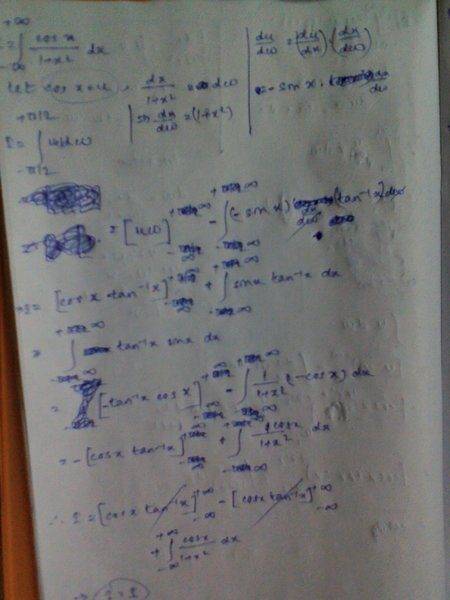 I = ∫_{-∞}^{+∞} cos x / (1+x²) dx
let cos x = u, dx/(1+x²) = dω
du/dω = (du/dx) · (dx/dω)
dx/dω = (1+x²)
= - sin x · dx/dω
I = ∫_{-π/2}^{+π/2} u dω
= [uω]_{-∞}^{+∞} - ∫_{-∞}^{+∞} (- sin x) (tan⁻¹x) dω
I = [cos x tan⁻¹x]_{-∞}^{+∞} + ∫_{-∞}^{+∞} sin x tan⁻¹x dx
= ∫_{-∞}^{+∞} tan⁻¹x sin x dx
= [-tan⁻¹x cos x]_{-∞}^{+∞} - ∫_{-∞}^{+∞} 1/(1+x²) (-cos x) dx
= -[cos x tan⁻¹x]_{-∞}^{+∞} + ∫_{-∞}^{+∞} cos x / (1+x²) dx
∴ I = [cos x tan⁻¹x]_{-∞}^{+∞} - [cos x tan⁻¹x]_{-∞}^{+∞}
+ ∫_{-∞}^{+∞} cos x / (1+x²) dx
⇒ I = I